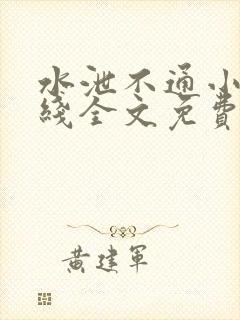 水泄不通小
綫全文免費
黄建軍